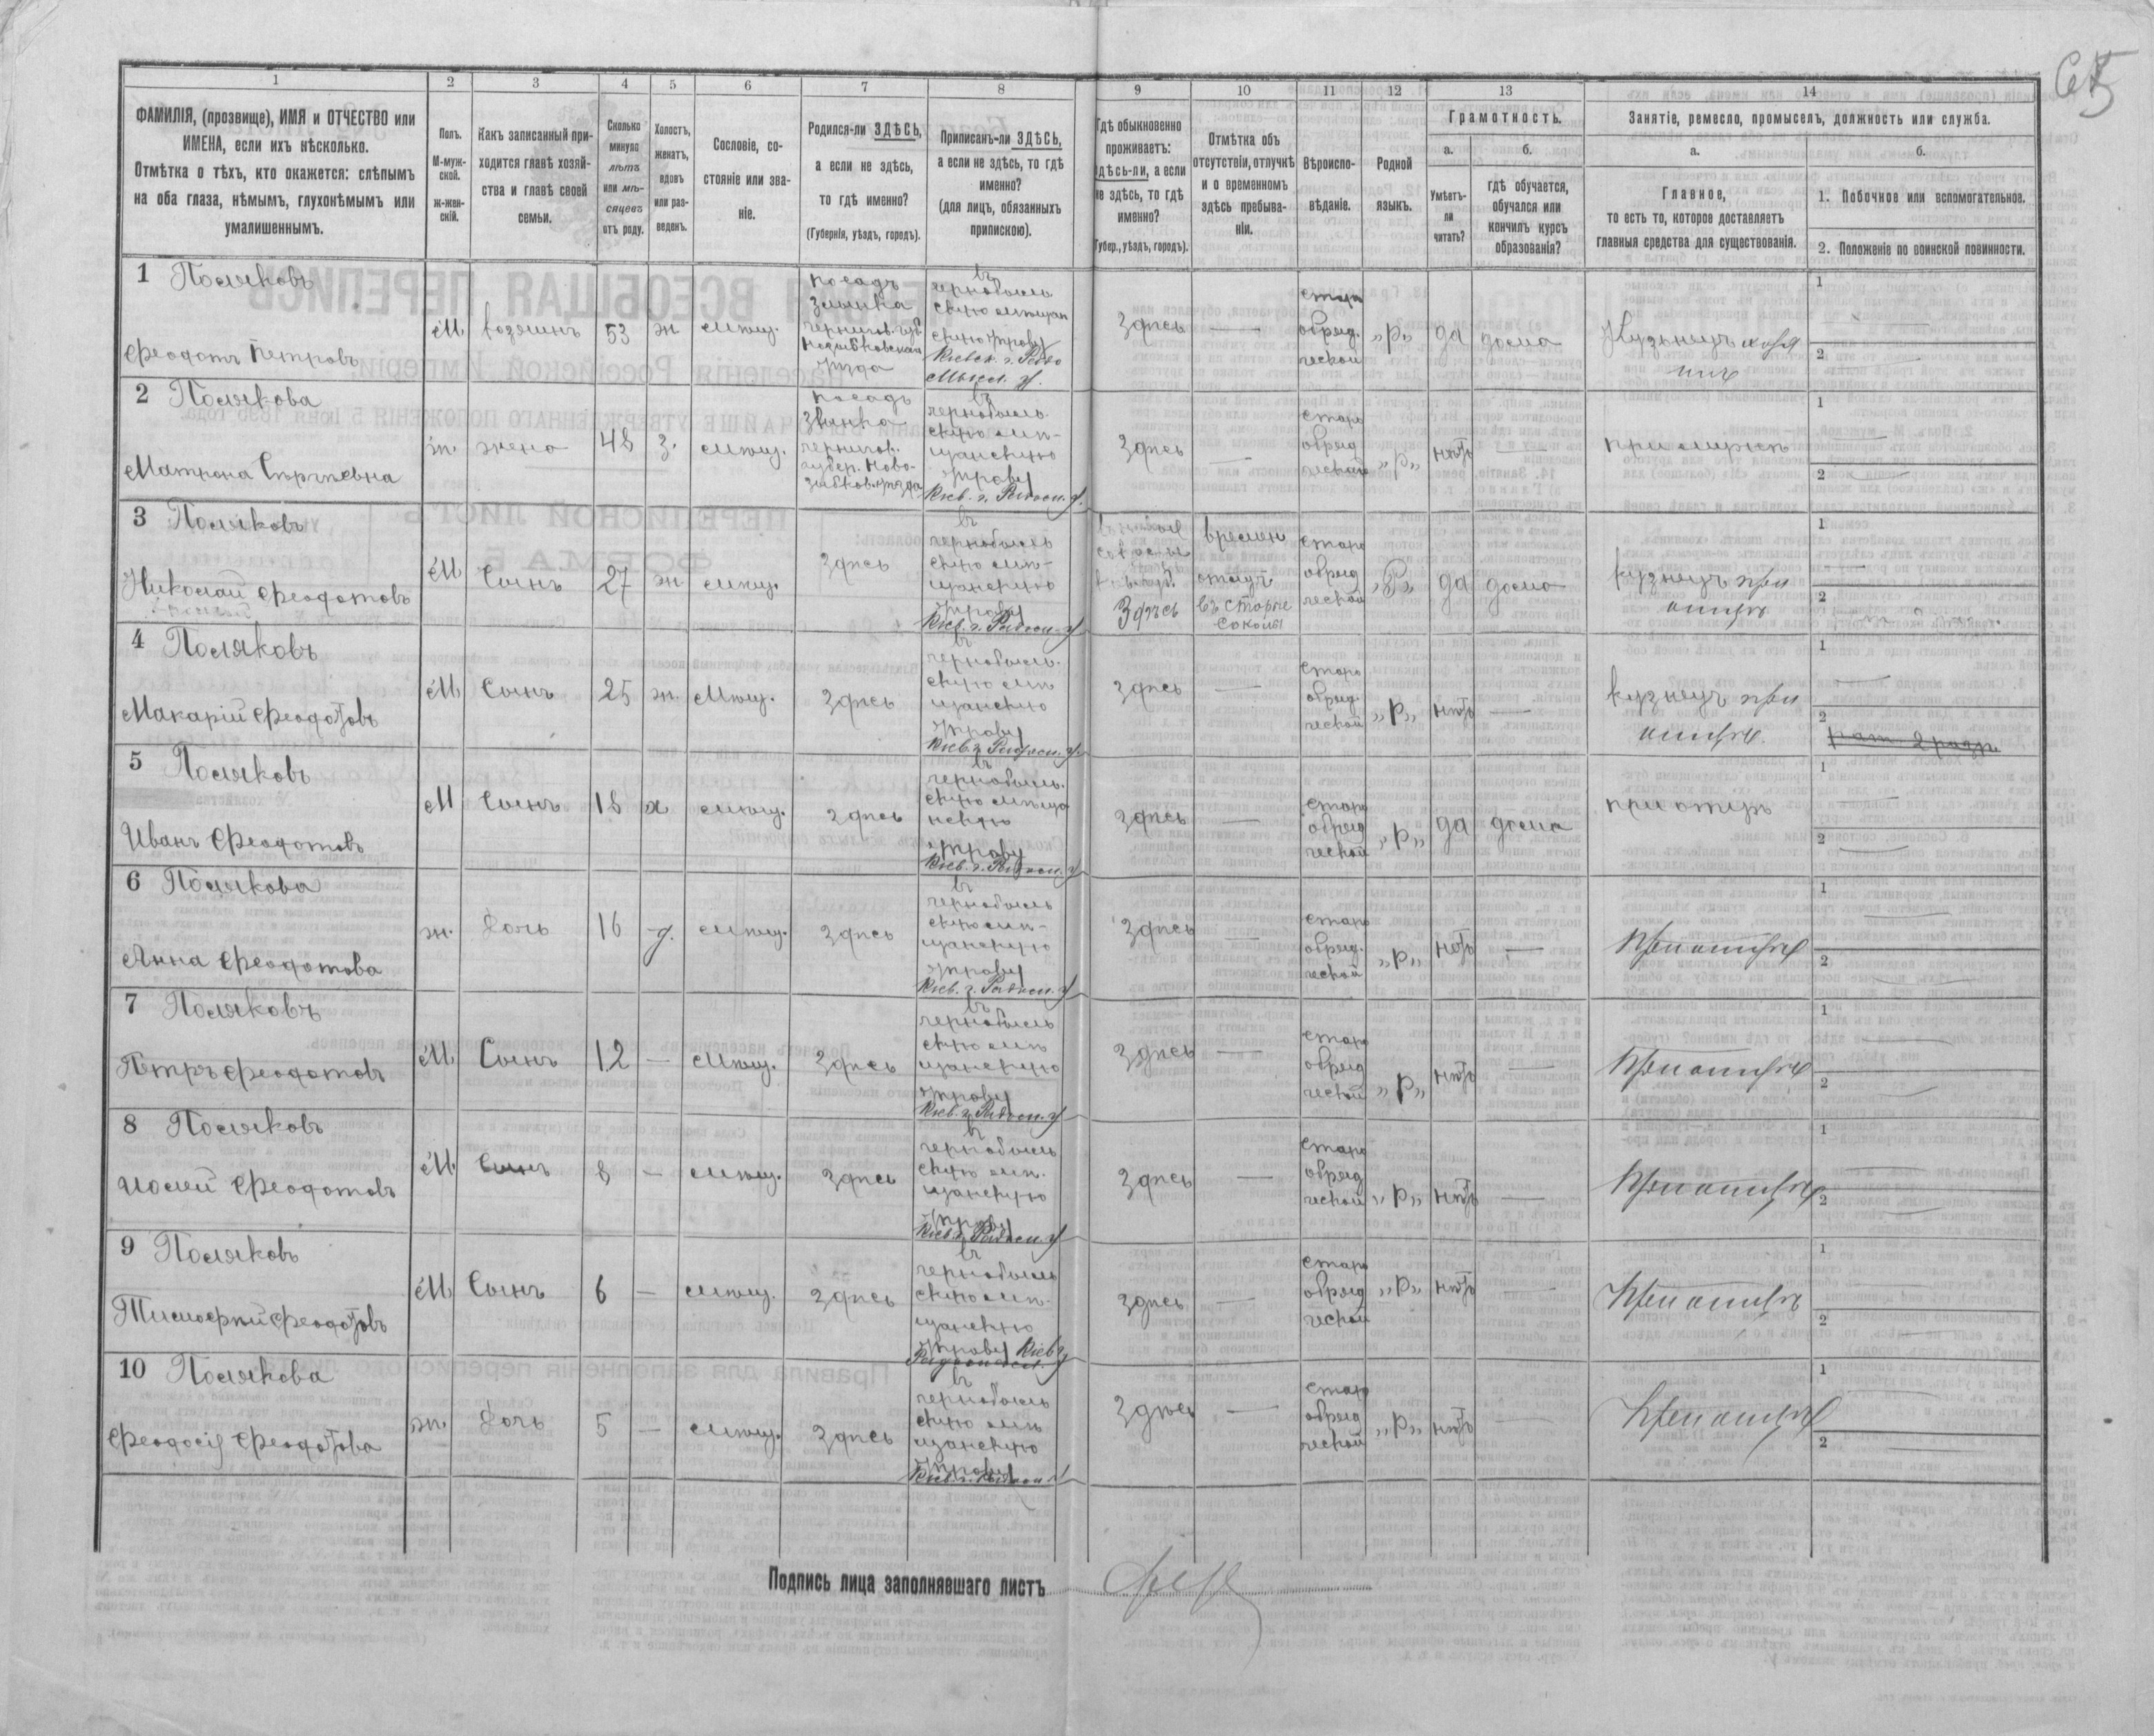 65
1 2 3 4 5 6 7 8 9 10 11 12 13 14
ФАМИЛІЯ, (прозвище), ИМЯ и ОТЧЕСТВО или
ИМЕНА, если ихъ нѣсколько.
Отмѣтка о тѣхъ, кто окажется: слѣпымъ
на оба глаза, нѣмымъ, глухонѣмымъ или
умалишеннымъ.
Полъ.
М-муж-
ской.
ж-жен-
скій.
Какъ записанный при-
ходится главѣ хозяй-
ства и главѣ своей
семьи.
Сколько
минуло
лѣтъ
или мѣ-
сяцевъ
отъ роду.
Холостъ,
женатъ,
вдовъ
или раз-
веденъ.
Сословіе, со-
стояніе или зва-
ніе.
Родился-ли ЗДѢСЬ,
а если не здѣсь,
то гдѣ именно?
(Губернія, уѣздъ, городъ).
Приписанъ-ли ЗДѢСЬ,
а если не здѣсь, то гдѣ
именно?
(для лицъ, обязанныхъ
припискою).
Гдѣ обыкновенно
проживаетъ:
здѣсь-ли, а если
не здѣсь, то гдѣ
именно?
(Губер., уѣздъ, городъ).
Отмѣтка объ
отсутствіи, отлучкѣ
и о временномъ
здѣсь пребыва-
ніи.
Вѣроиспо-
вѣданіе.
Родной
языкъ.
Грамотность.
а.
Умѣетъ-
ли
читать?
б.
гдѣ обучается,
обучался или
кончилъ курсъ
образованія?
Занятіе, ремесло, промыселъ, должность или служба.
а.
Главное,
то есть то, которое доставляетъ
главныя средства для существованія.
б.
1. Побочное или вспомогательное.
2. Положеніе по воинской повинности.
1 Поляковъ
Феодотъ Петровъ
М хозяинъ 53 ж мѣщ.
посадъ
Злынка
Чернигов. губ.
уѣзда
въ
Чернобыль
скую мѣщан
скую управу
Кіевск. г. Радо
мысл. у.
Здѣсь —
Старо
обряд.
ческой
„Р„ да дома
Кузнецъ хозя
инъ
1
2 —
2 Полякова
Матрона Сергѣевна
ж. жена 48 з. мѣщ.
посадъ
Злынка
Чернигов.
губер. Ново-
зыбков. уѣзда
въ
Чернобыль
скую мѣ-
щанскую
управу
Кіев. г. Радом. у.
Здѣсь —
Старо
обряд
ческой
„Р„ нѣтъ —
при мужѣ
1 —
2 —
3 Поляковъ
Николай Феодотовъ
М Сынъ 27 ж мѣщ. Здѣсь
въ
Чернобыль
скую мѣ-
щанскую
управу
Кіев. г. Радом. у
Здѣсь
времен
отлуч
въ
Старо
обряд
ческой
„Р„ да дома
кузнецъ при
отцѣ
1 —
2
4 Поляковъ
Макарій Феодотовъ
М Сынъ 25 ж. Мѣщ. Здѣсь
въ
Чернобыль.
скую мѣ
щанскую
управу
Кіев. г. Радом. у.
Здѣсь —
Старо
обряд.
ческой
„Р„ нѣтъ —
кузнецъ при
отцѣ.
1 —
2
5 Поляковъ
Иванъ Феодотовъ
М Сынъ 18 х мѣщ. Здѣсь
въ
Чернобыль.
скую мѣща
нскую
управу
Кіев. г. Радом. у
Здѣсь —
Старо
обряд
ческой
„Р„ да дома
при отцѣ
1 —
2 —
6 Полякова
Анна Феодотова
ж. дочь 16 д. мѣщ. Здѣсь
въ
Чернобыль
скую мѣ-
щанскую
управу
Кіев. г. Радом. у
Здѣсь —
Старо
обряд.
ческой
„Р„ нѣтъ —
При отцѣ
1 —
2 —
7 Поляковъ
Петръ Феодотовъ
М Сынъ 12 — Мѣщ. Здѣсь
въ
Чернобыль
скую мѣ
щанскую
управу
Кіев. г. Радом. у
Здѣсь —
Старо
обряд
ческой
„Р„ нѣтъ —
При отцѣ
1 —
2 —
8 Поляковъ
Феодотовъ
М Сынъ 8 — мѣщ. Здѣсь
въ
Чернобыль
скую мѣ.
щанскую
управу
Кіев. г. Радом. у
Здѣсь —
Старо
обряд
ческой
„Р„ нѣтъ —
При отцѣ
1 —
2 —
9 Поляковъ
Тимофей Феодотовъ
М Сынъ 6 — мѣщ. Здѣсь
въ
Чернобыль
скую мѣ.
щанскую
управу Кіев г
Здѣсь —
Старо
обряд
ческой
„Р„ нѣтъ —
При отцѣ
1 —
2 —
10 Полякова
Феодосія Феодотова
ж. дочь 5 — мѣщ. Здѣсь
въ
Чернобыль
скую мѣ
щанскую
управу
Кіев. г. Радом. у
Здѣсь —
Старо
обряд
ческой
„Р„ нѣтъ —
При отцѣ
1 —
2 —
Подпись лица заполнявшаго листъ